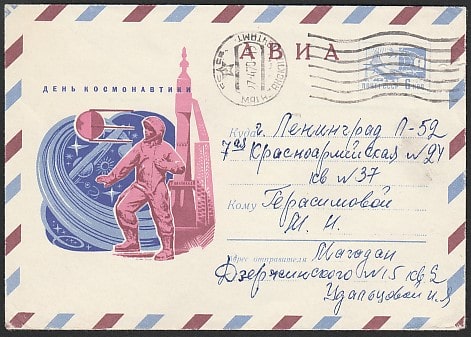 АВИА
ДЕНЬ КОСМОНАВТИКИ
Куда г. Ленинград Л-52
7ая Красноармейская №24
кв №37
Кому Герасимовой
М. И.
Адрес отправителя Магадан
Дзержинского №15 кв 2
Удальцовой И. Я